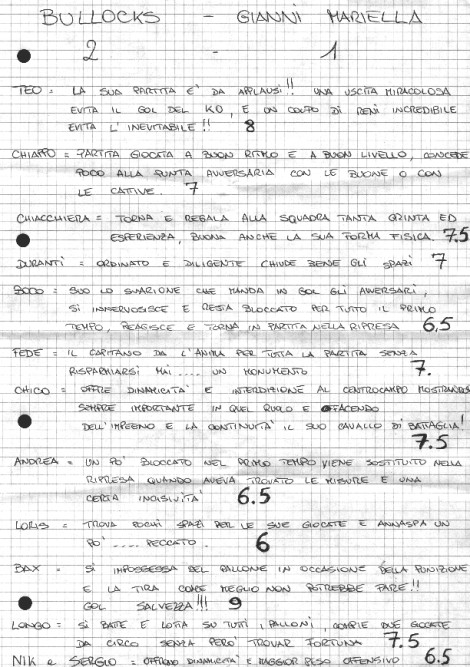 BULLOCKS - GIANNI MARIELLA
2 - 1
TEO = LA SUA PARTITA E' DA APPLAUSI!! UNA USCITA MIRACOLOSA
EVITA IL GOL DEL KO, E UN COLPO DI RENI INCREDIBILE
EVITA L'INEVITABILE!! 8
CHIAPPO = PARTITA GIOCATA A BUON RITMO E A BUON LIVELLO, CONCEDE
POCO ALLA PUNTA AVVERSARIA CON LE BUONE O CON
LE CATTIVE. 7
CHIACCHIERA = TORNA E REGALA ALLA SQUADRA TANTA GRINTA ED
ESPERIENZA, BUONA ANCHE LA SUA FORMA FISICA. 7.5
DURANTI = ORDINATO E DILIGENTE CHIUDE BENE GLI SPAZI 7
BOCO = SUO LO SVARIONE CHE MANDA IN GOL GLI AVVERSARI,
SI INNERVOSISCE E RESTA BLOCCATO PER TUTTO IL PRIMO
TEMPO, REAGISCE E TORNA IN PARTITA NELLA RIPRESA 6,5
FEDE = IL CAPITANO DA L'ANIMA PER TUTTA LA PARTITA SENZA
RISPARMIARSI MAI .... UN MONUMENTO 7.
CHICO = OFFRE DINAMICITA' E INTERDIZIONE AL CENTROCAMPO MOSTRANDOSI
SEMPRE IMPORTANTE IN QUEL RUOLO E FACENDO
DELL'IMPEGNO E LA CONTINUITA' IL SUO CAVALLO DI BATTAGLIA!
7.5
ANDREA = UN PO' BLOCCATO NEL PRIMO TEMPO VIENE SOSTITUITO NELLA
RIPRESA QUANDO AVEVA TROVATO LE MISURE E UNA
CERTA INCISIVITA' 6.5
LORIS = TROVA POCHI SPAZI PER LE SUE GIOCATE E ANNASPA UN
PO' .... PECCATO. 6
BAX = SI IMPOSSESSA DEL PALLONE IN OCCASIONE DELLA PUNIZIONE
E LA TIRA COME MEGLIO NON POTREBBE FARE!!
GOL SALVEZZA!!! 9
LONGO = SI BATTE E LOTTA SU TUTTI I PALLONI, COMPIE DUE GIOCATE
DA CIRCO SENZA PERO' TROVAR FORTUNA 7.5
NIK e SERGIO = OFFRONO DINAMICITA' E MAGGIOR PESO OFFENSIVO 6.5